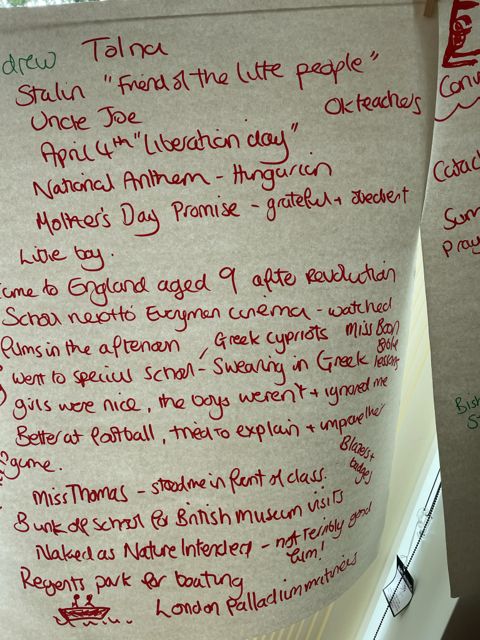 drew Tolna
Stalin "Friend of the little people"
Uncle Joe Ok teachers
April 4th "liberation day"
National Anthem - Hungarian
Mother's Day Promise - grateful + obedient
Little boy.
came to England aged 9 after Revolution
School next to Everyman cinema - watched
films in the afternoon Greek cypriots Miss Boon
went to special school - Swearing in Greek lessons
girls were nice, the boys weren't + ignored me
Better at football, tried to explain + improve their
game. Blazers + badges
Miss Thomas - stood me in front of class.
Bunk off school for British Museum visits
Naked as Nature Intended - not terribly good
film!
Regents park for boating
London Palladium matinees
Conv
Catac
Sum
pray
Bis
St